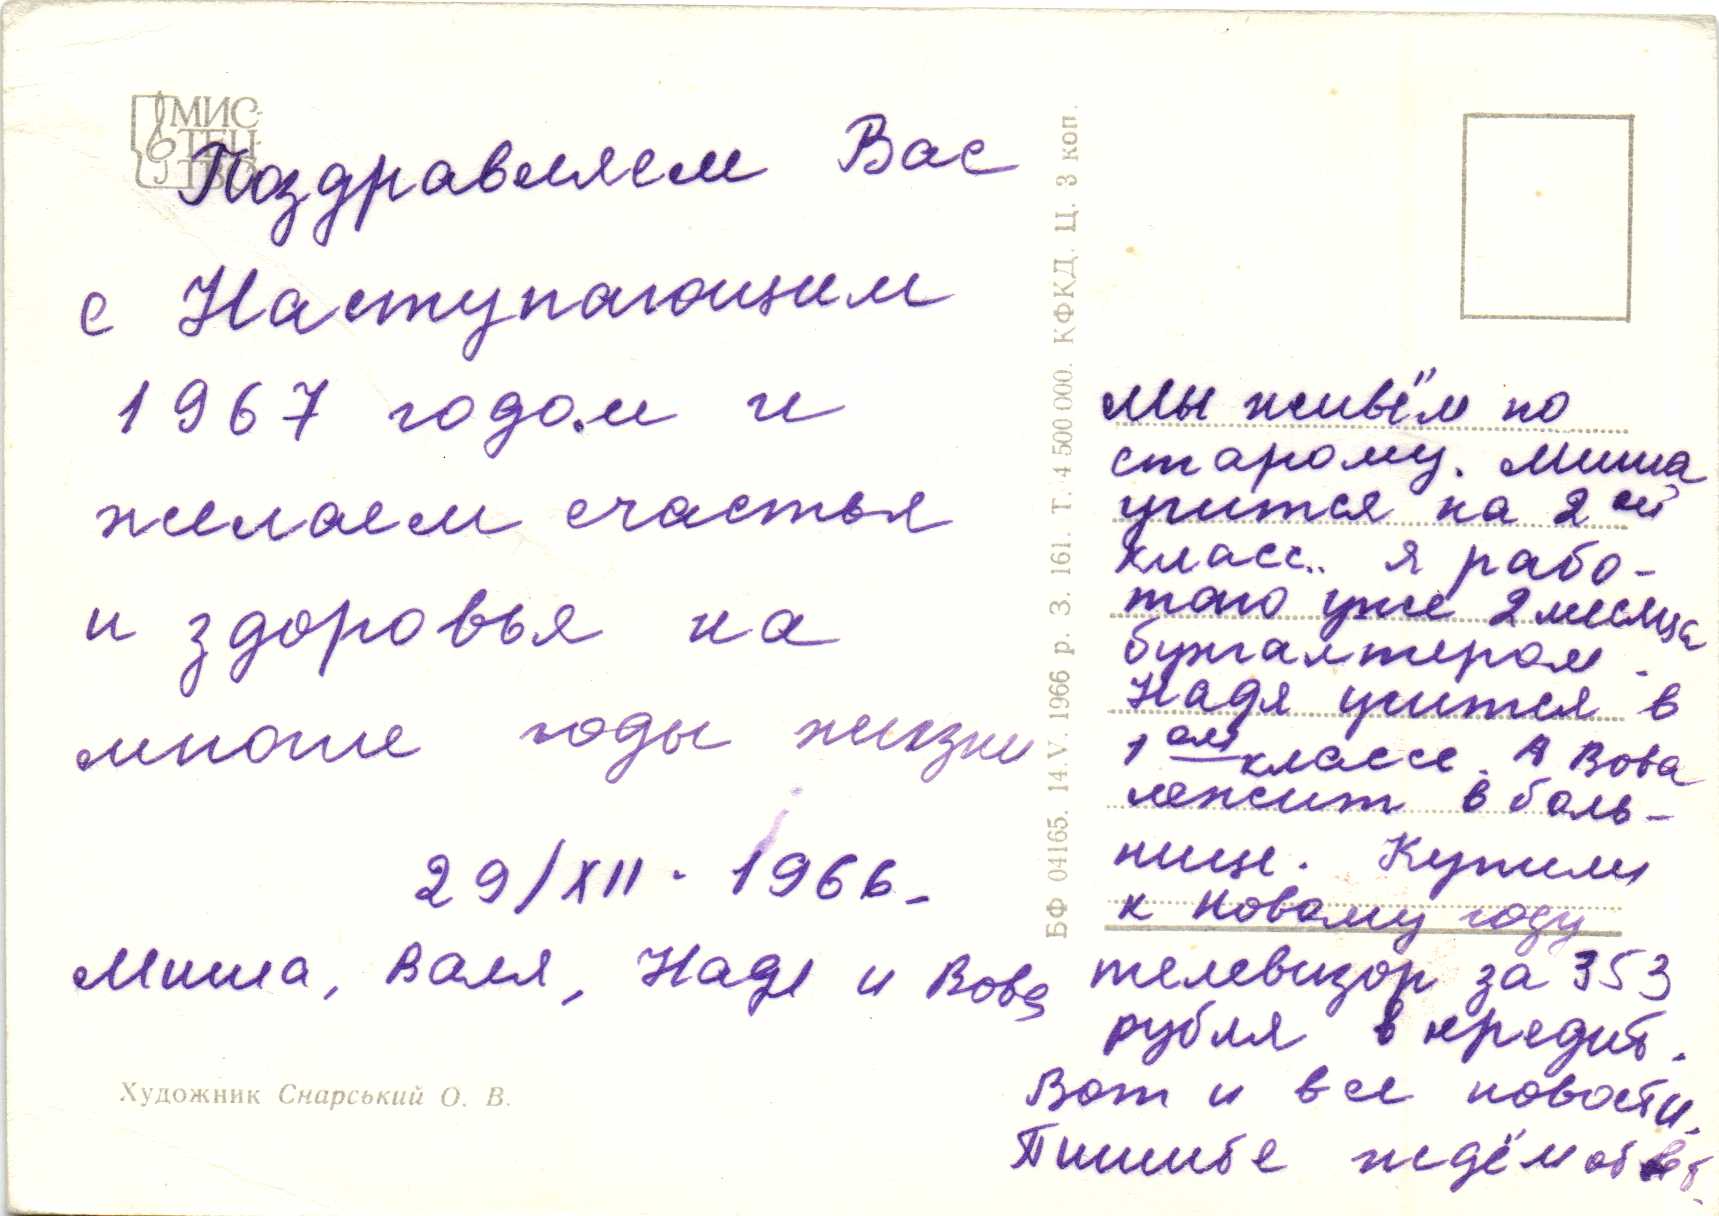 МИС-
ТЕЦ-
ТВО
Поздравляем Вас
с Наступающим
1967 годом и
желаем счастья
и здоровья на
многие годы жизни
29/XII. 1966 –
Миша, Валя, Надя и Вова
Художник Снарський О. В.
БФ 04165. 14.V. 1966 р. З. 161. Т. 4 500 000. КФКД. Ц. 3 коп.
Мы живём по
старому. Миша
учится на 2 ой
класс.. Я рабо-
таю уже 2 месяца
бухгалтером.
Надя учится в
1 ом классе. А Вова
лежит в боль-
нице. Купили
к Новому году
телевизор за 353
рубля в кредит.
Вот и все новости.
Пишите ждём ответ.